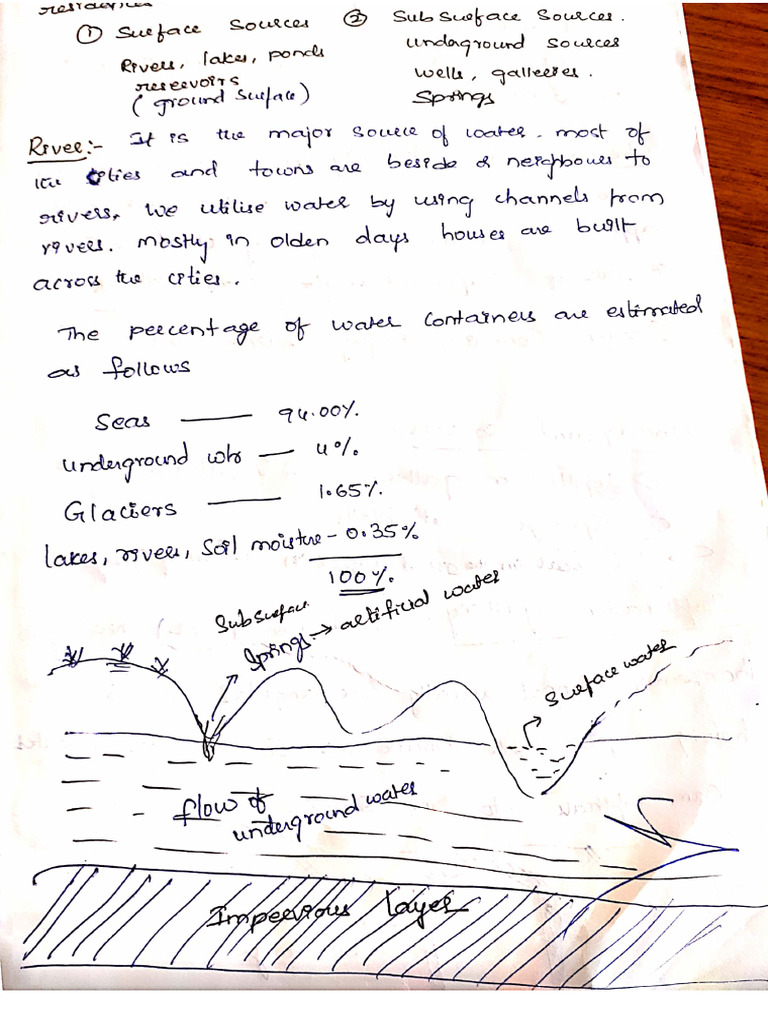 ① Surface Sources ② Subsurface Sources.
Rivers, lakes, ponds underground sources
reservoirs wells, galleries.
(ground surface) Springs
River:- It is the major source of water. most of
the cities and towns are beside & neighbours to
rivers, we utilise water by using channels from
rivers. mostly in olden days houses are built
across the cities.
The percentage of water containers are estimated
as follows
Seas —— 94.00%.
underground wtr — 4%.
Glaciers —— 1.65%.
lakes, rivers, soil moisture - 0.35%
100%.
Subsurface
Springs → artificial water
Surface water
flow of
underground water
Impervious layer